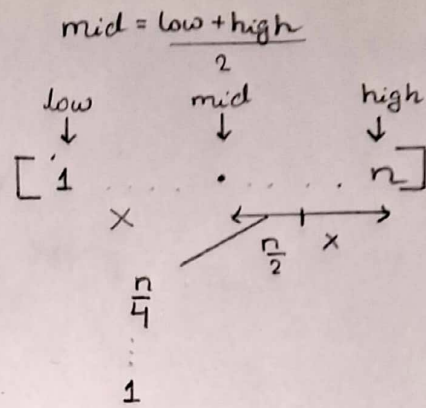 mid = low + high
2
low mid high
[ 1 . . . . . • . . . . . n ]
× n/2 ×
n/4
⋮
1